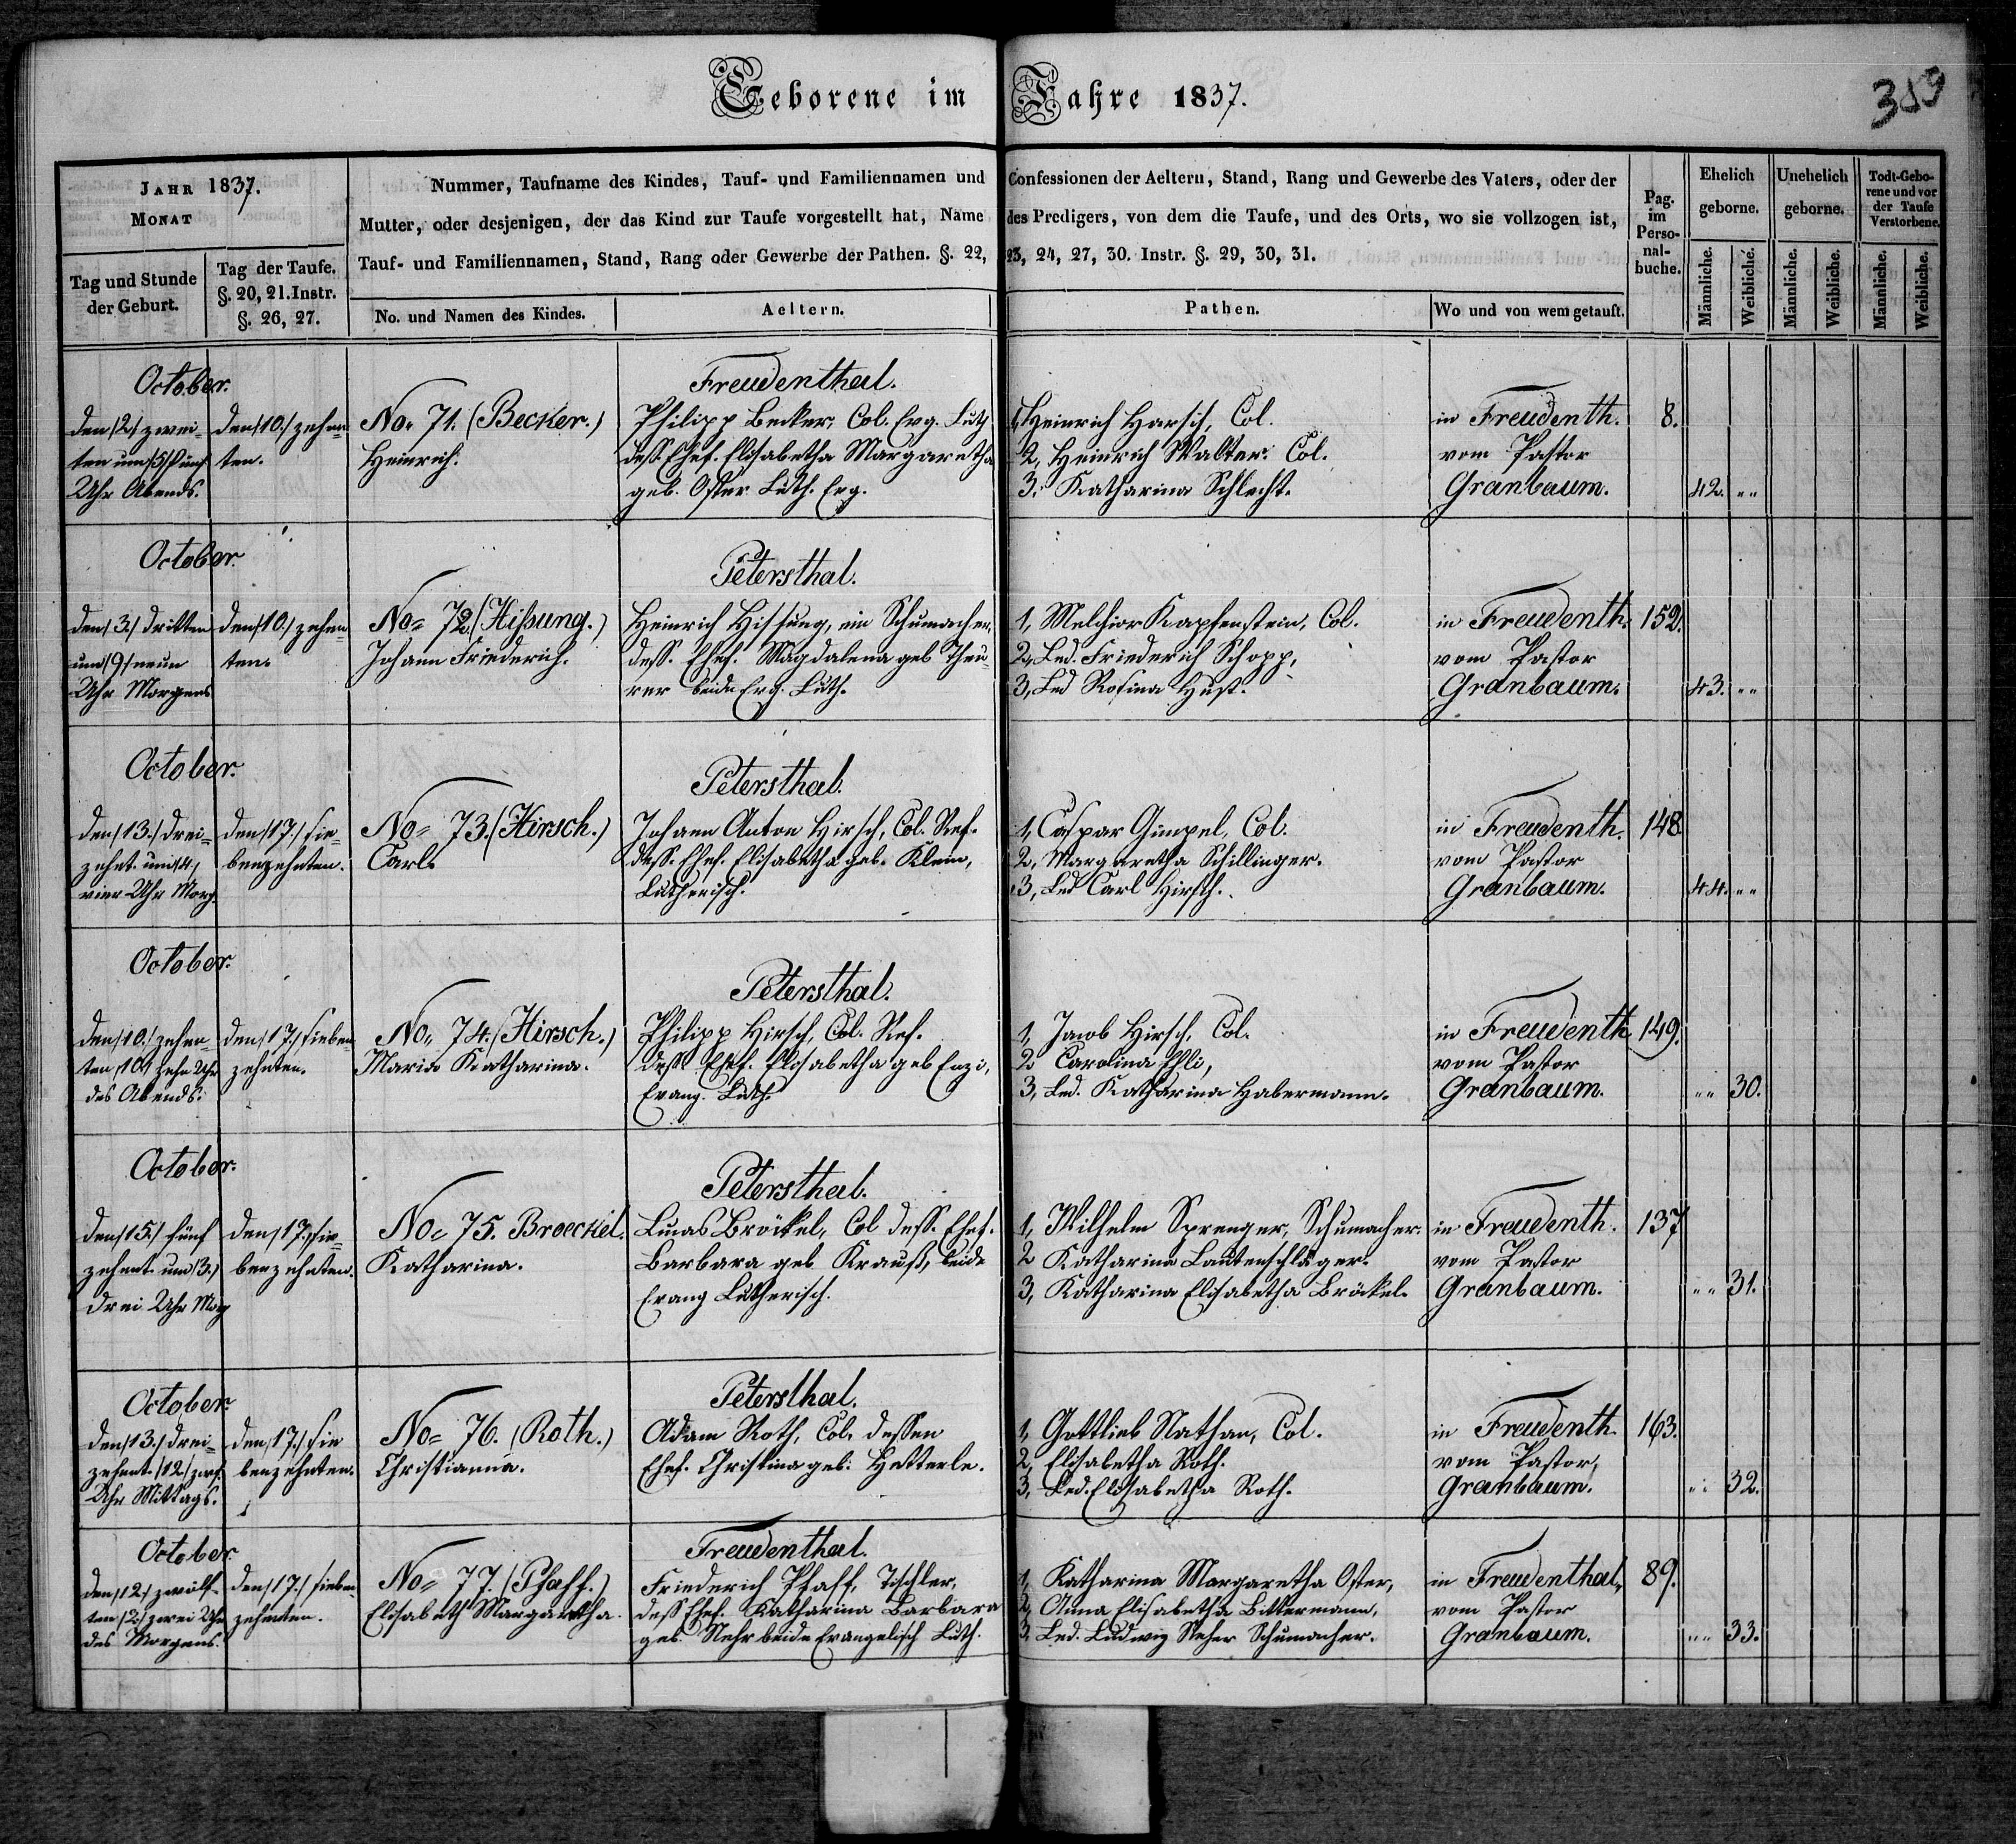 Geborene im Jahre 1837.
389
JAHR 1837.
MONAT
Tag und Stunde
der Geburt.
Tag der Taufe.
§. 20, 21. Instr.
§. 26, 27.
Nummer, Taufname des Kindes, Tauf- und Familiennamen und Confessionen der Aeltern, Stand, Rang und Gewerbe des Vaters, oder der
Mutter, oder desjenigen, der das Kind zur Taufe vorgestellt hat, Name des Predigers, von dem die Taufe, und des Orts, wo sie vollzogen ist,
Tauf- und Familiennamen, Stand, Rang oder Gewerbe der Pathen. §. 22, 23, 24, 27, 30. Instr. §. 29, 30, 31.
No. und Namen des Kindes.
Aeltern.
Pathen.
Wo und von wem getauft.
Pag.
im
Perso-
nal-
buche.
Ehelich
geborne.
Männliche.
Weibliche.
Unehelich
geborne.
Männliche.
Weibliche.
Todt-Gebo-
rene und vor
der Taufe
Verstorbene.
Männliche.
Weibliche.
October.
den /2./ zwei-
ten um /5/ fünf
Uhr Abends.
den /10./ zehen-
ten.
No. 71. (Becker.)
Heinrich.
Freudenthal.
Philipp Becker, Col. Evg. Luth
dess. Ehef. Elisabetha Margaretha
geb. Oster Luth. Evg.
1, Heinrich Harsch, Col.
2, Heinrich Walter. Col.
3. Katharina Schlecht.
in Freudenth.
vom Pastor
Granbaum.
8.
42. „„
October.
den /3./ dritten
um /9/ neun
Uhr Morgens
den /10./ zehen-
ten.
No= 72. (Hissung.)
Johann Friederich.
Petersthal.
Heinrich Hissung, ein Schumacher,
dess. Ehef. Magdalena geb Theu-
rer beide Evg. Luth.
1, Melchior Kapfenstein, Col.
2, Led. Friederich Schopp,
3, Led Rosina Hust.
in Freudenth.
vom Pastor
Granbaum.
152.
43. „„
October.
den /13./ drei-
zehnt. um /4./
vier Uhr Morg.
den /17./ sie-
benzehnten.
No= 73. (Hirsch.)
Carl.
Petersthal.
Johann Anton Hirsch, Col. Ref.
dess. Ehef. Elisabetha geb. Klein,
Lutherisch.
1, Caspar Gimpel, Col.
2, Margaretha Schillinger.
3, Led Carl Hirsch.
in Freudenth.
vom Pastor
Granbaum.
148
44. „„
October.
den /10./ zehen-
ten /10./ zehn Uhr
des Abends.
den /17./ sieben-
zehnten.
No„ 74. (Hirsch.)
Maria Katharina.
Petersthal.
Philipp Hirsch, Col. Ref.
dess. Ehef. Elisabetha geb Enzi,
Evang. Luth.
1, Jacob Hirsch, Col.
2 Carolina Ehli,
3, Led. Katharina Habermann.
in Freudenth
vom Pastor
Granbaum.
149.
„„ 30.
October.
den /15./ fünf
zehent um /3./
drei Uhr Morg
den /17./ sie-
benzehnten.
No= 75. Broeckel.
Katharina.
Petersthal.
Lucas Bröckel, Col dess. Ehef.
Barbara geb Krauß, beide
Evang Lutherisch.
1, Wilhelm Sprenger, Schumacher.
2 Katharina Lautenschläger.
3, Katharina Elisabetha Bröckel.
in Freudenth.
vom Pastor
Granbaum.
137
„„ 31.
October.
den /13./ drei-
zehent. /12./ zwf.
Uhr Mittags.
den /17./ sie
benzehnten.
No= 76. (Roth.)
Christianna.
Petersthal.
Adam Roth, Col. dessen
Ehef. Christina geb. Hetterle.
1, Gottlieb Nathan, Col.
2, Elisabetha Roth.
3, Led. Elisabetha Roth.
in Freudenth.
vom Pastor,
Granbaum.
163.
„„ 32.
October.
den /12./ zwölf-
ten /2./ zwei Uhr
des Morgens.
den /17./ sieben-
zehnten.
No= 77. (Pfaff.)
Elisabeth Margaretha.
Freudenthal.
Friederich Pfaff, Tischler,
dess Ehef. Katharina Barbara
geb. Nehr beide Evangelisch Luth.
1, Katharina Margaretha Oster,
2, Anna Elisabetha Bittermann,
3, Led. Ludwig Neher Schumacher.
in Freudenthal,
vom Pastor
Granbaum.
89.
„„ 33.